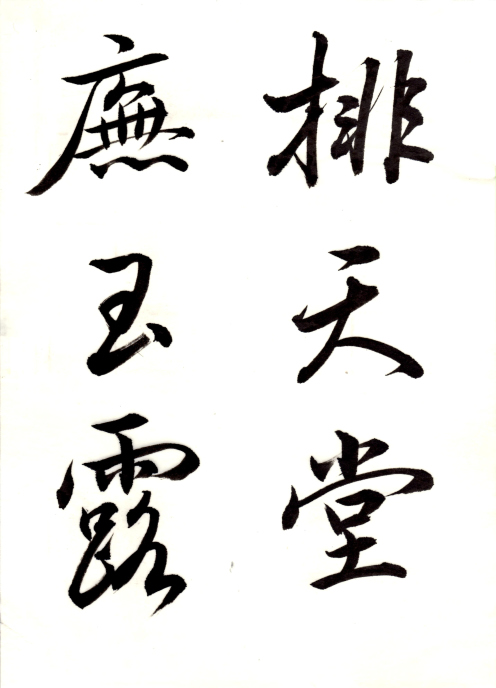 排天堂
廡玉露